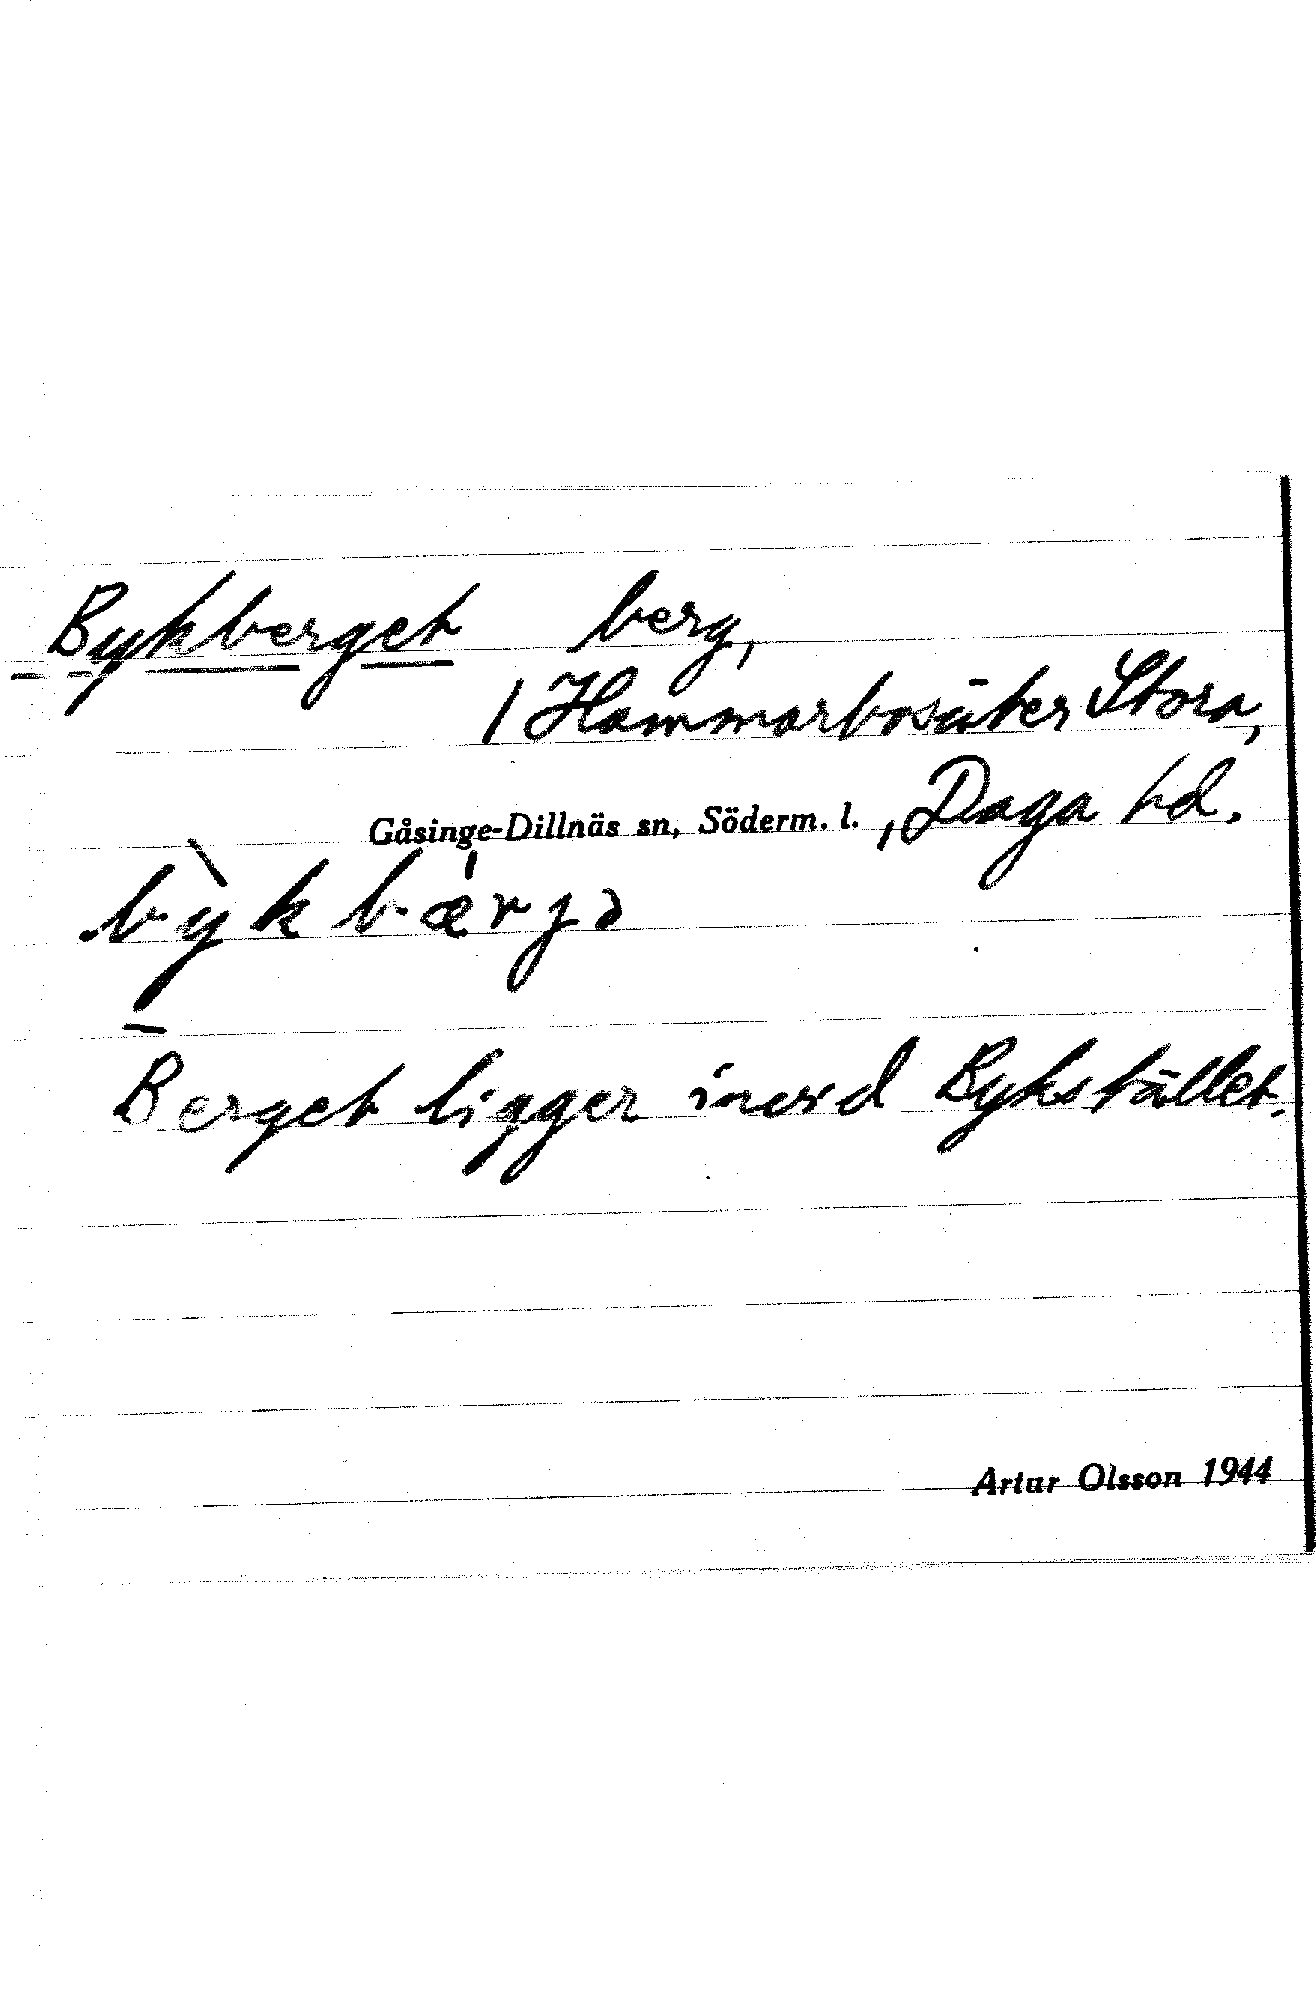 Bykberget berg,
/ Hammarbosäter Stora,
Gåsinge-Dillnäs sn, Söderm. l. , Daga hd.
bỳkbærjə
Berget ligger invid Bykstället.
Artur Olsson 1944